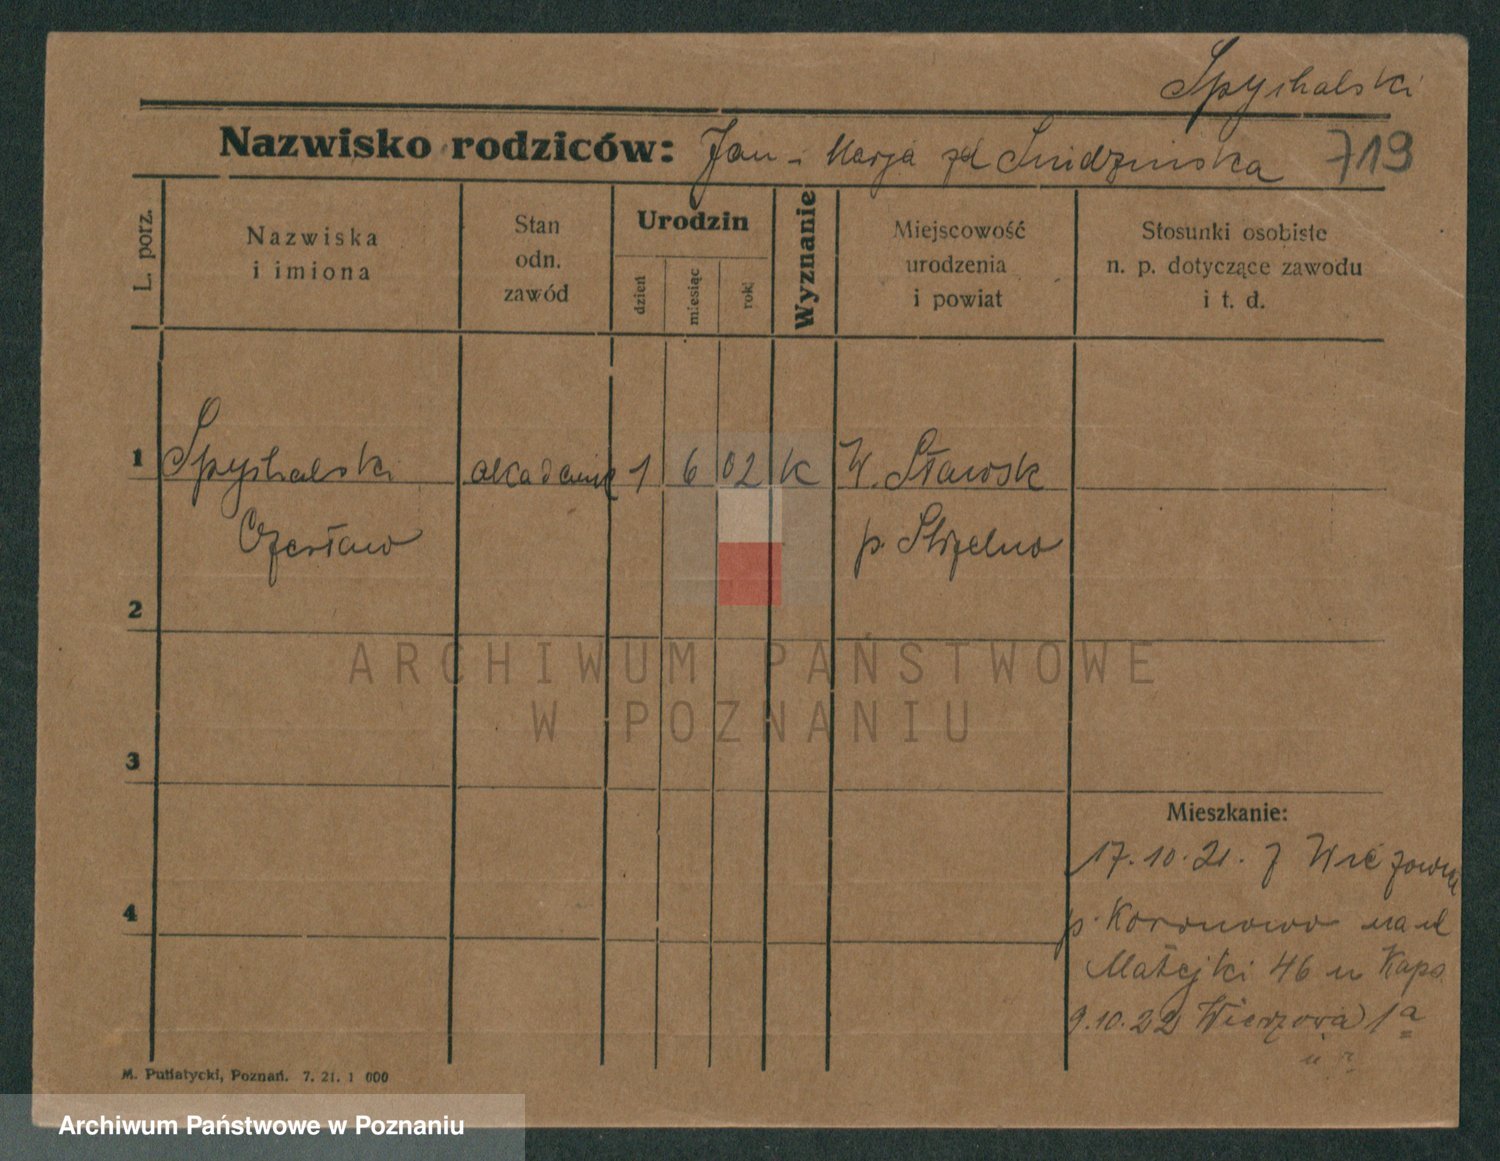 Spychalski
Nazwisko rodziców: Jan - Marja zd Smidzinska 719
L. porz.
Nazwiska
i imiona
Stan
odn.
zawód
Urodzin
dzień
miesiąc
rok
Wyznanie
Miejscowość
urodzenia
i powiat
Stosunki osobiste
n. p. dotyczące zawodu
i t. d.
1 Spychalski akademik 1 6 02 K W. Sławsk
Czesław p. Strzelno
2
ARCHIWUM PAŃSTWOWE
W POZNANIU
3
Mieszkanie:
17.10.21. z
4
p. Koronowo nad
Matejki 46 u Kaps.
9.10.22 1a
M. Putiatycki, Poznań. 7. 21. 1 000
Archiwum Państwowe w Poznaniu